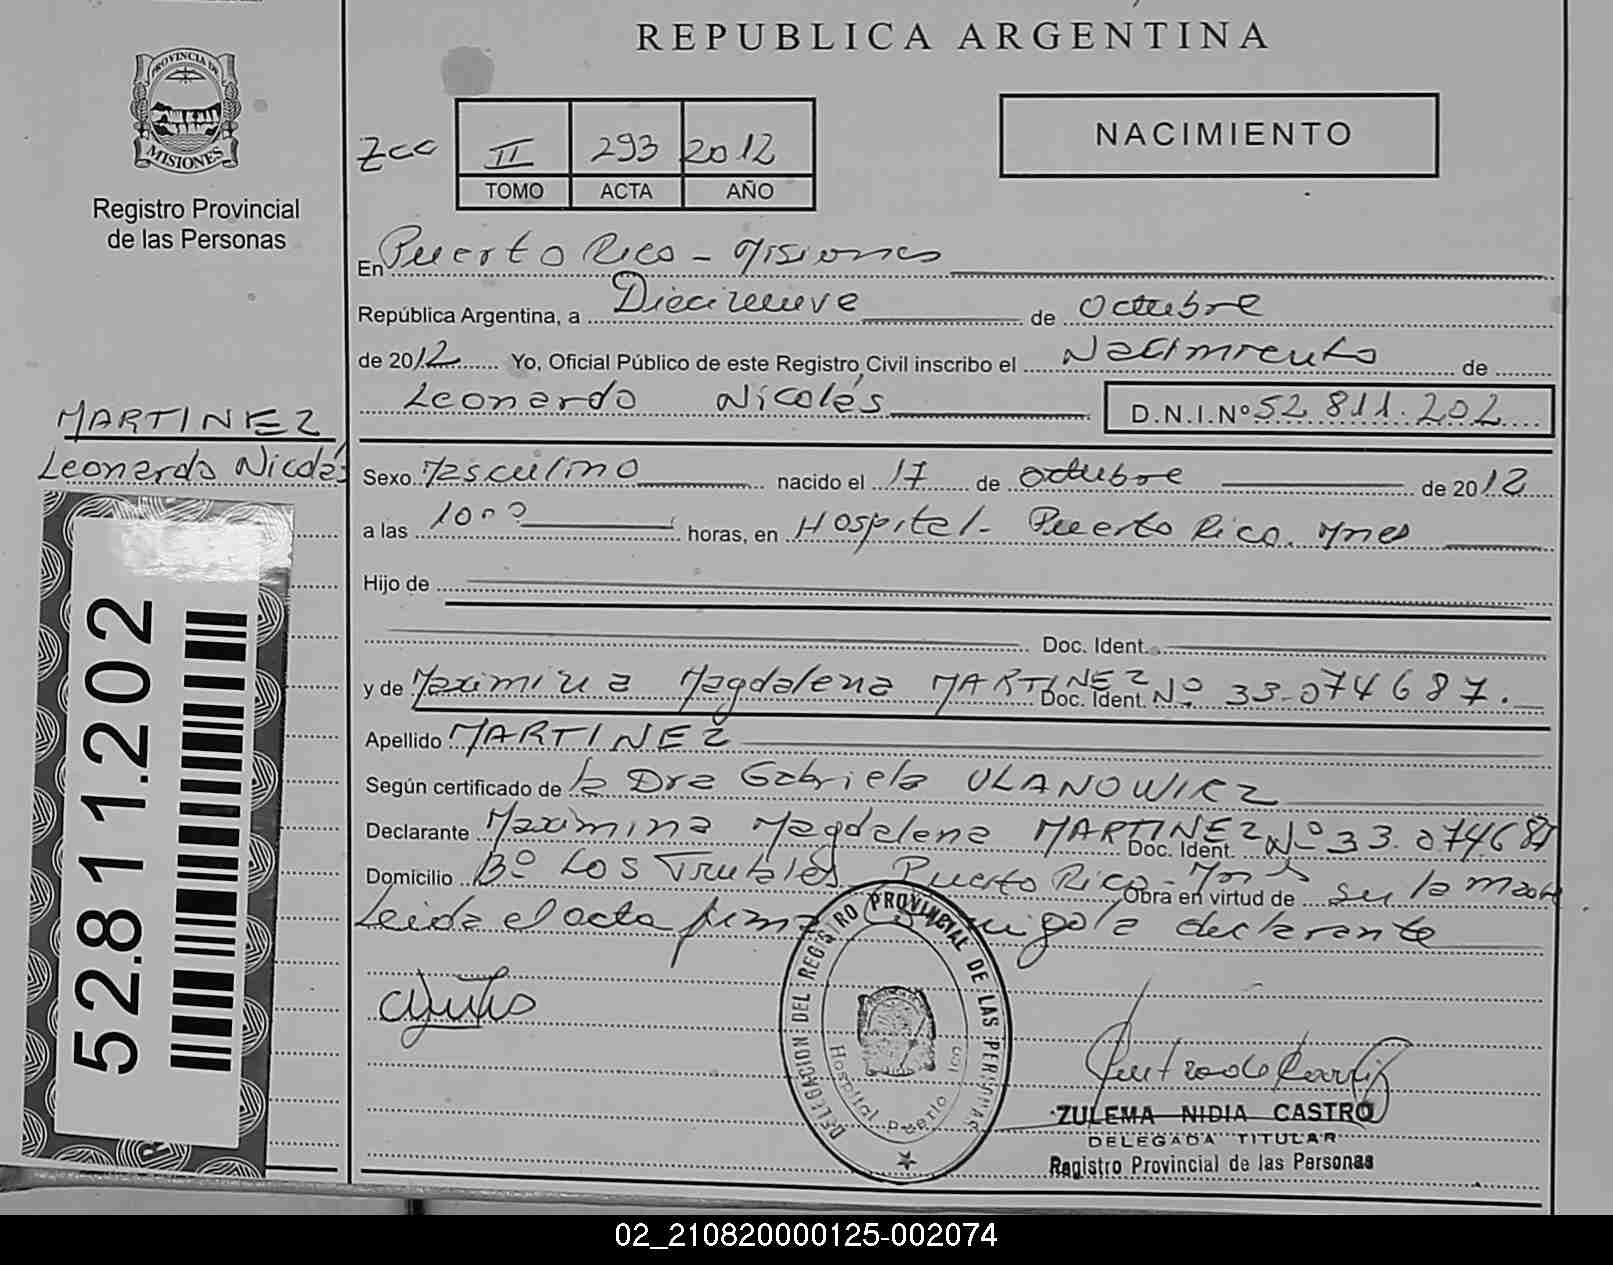 REPUBLICA ARGENTINA
PROVINCIA DE
MISIONES
Registro Provincial
de las Personas
II 293 2012
TOMO ACTA AÑO
NACIMIENTO
En Puerto Rico - Misiones
República Argentina, a Diecinueve de Octubre
de 2012 Yo, Oficial Público de este Registro Civil inscribo el Nacimiento de
Leonardo Nicolás D.N.I.Nº 52.811.202
MARTINEZ
Leonardo Nicolás
Sexo Masculino nacido el 17 de octubre de 2012
a las 10 horas, en Hospital - Puerto Rico. Mnes
Hijo de
Doc. Ident.
y de Maximina Magdalena MARTINEZ Doc. Ident. Nº 33.074687.
Apellido MARTINEZ
Según certificado de la Dra Gabriela ULANOWICZ
Declarante Maximina Magdalena MARTINEZ Doc. Ident. Nº 33.074.687
Domicilio Bº Los Puerto Rico - Obra en virtud de ser la madre
Leida el acta firma declarante
52.811.202
DELEGACION DEL REGISTRO PROVINCIAL DE LAS PERSONAS
Hospital Puerto Rico
ZULEMA NIDIA CASTRO
DELEGADA TITULAR
Registro Provincial de las Personas
02_210820000125-002074